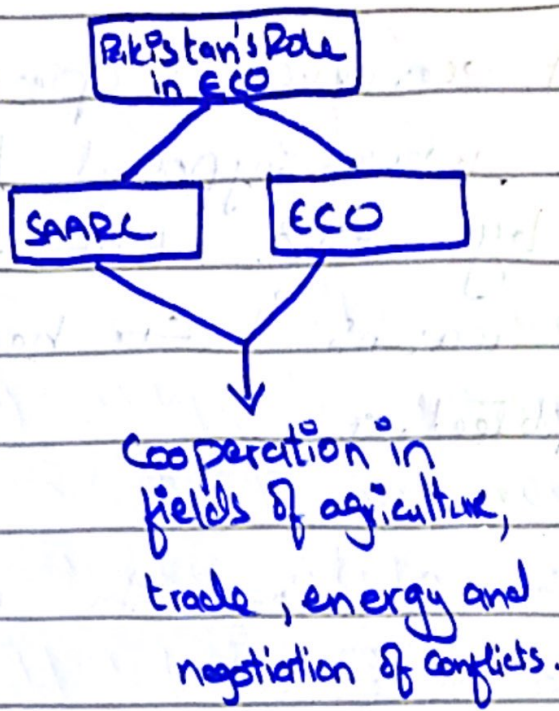 Pakistan's Role
in ECO
SAARC
ECO
Cooperation in
fields of agriculture,
trade, energy and
negotiation of conflicts.